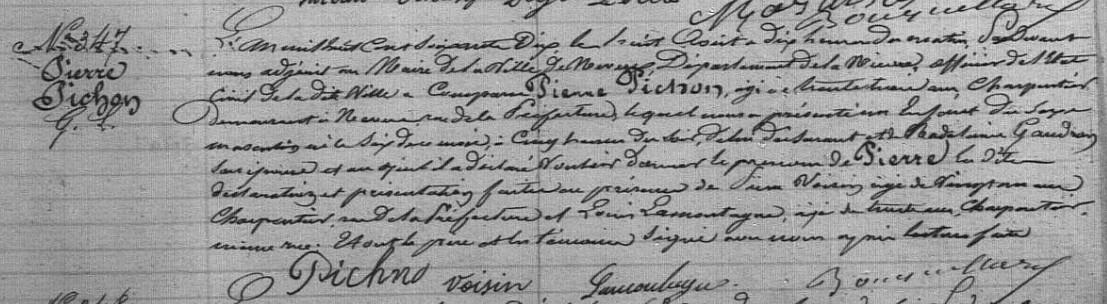 No 347
Pierre
Pichon
G. L.
L'an mil huit cent soixante Dix le huit Août à dix heures du matin Par Devant
nous adjoint au Maire de la Ville de Nevers, Département de la Nièvre, officier de l'Etat
civil de la dite Ville a Comparu Pierre Pichon, âgé de trente trois ans, Charpentier
demeurant à Nevers, rue de la Préfecture, lequel nous a présenté un Enfant du Sexe
masculin né le Six de ce mois, à Cinq heures du soir, de lui déclarant et de Madeleine Gaudron
son épouse et auquel il a déclaré Vouloir donner le prénom de Pierre les dites
déclaration et présentation faites en présence de Pierre Voisin âgé de Vingt ans
Charpentier, rue de la Préfecture et Louis Lamontagne, âgé de trente ans, Charpentier
même rue. Et ont le père et les témoins Signé avec nous après lecture faite
Pichno voisin